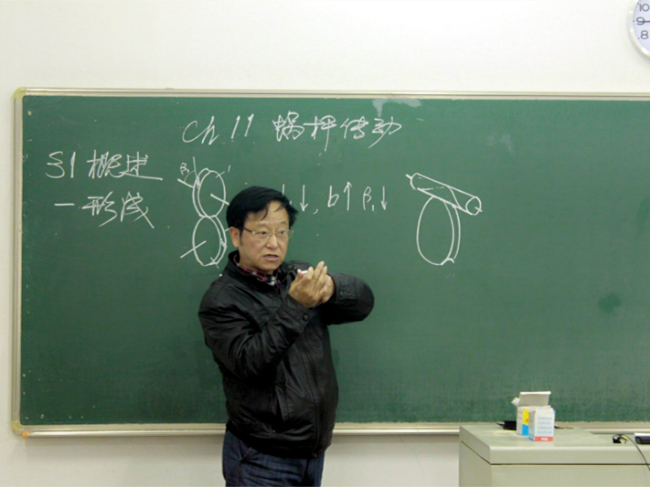 Ch 11 蜗杆传动
§1 概述
一形成
β₁
↓, b↑ β₁↓
10
9
8